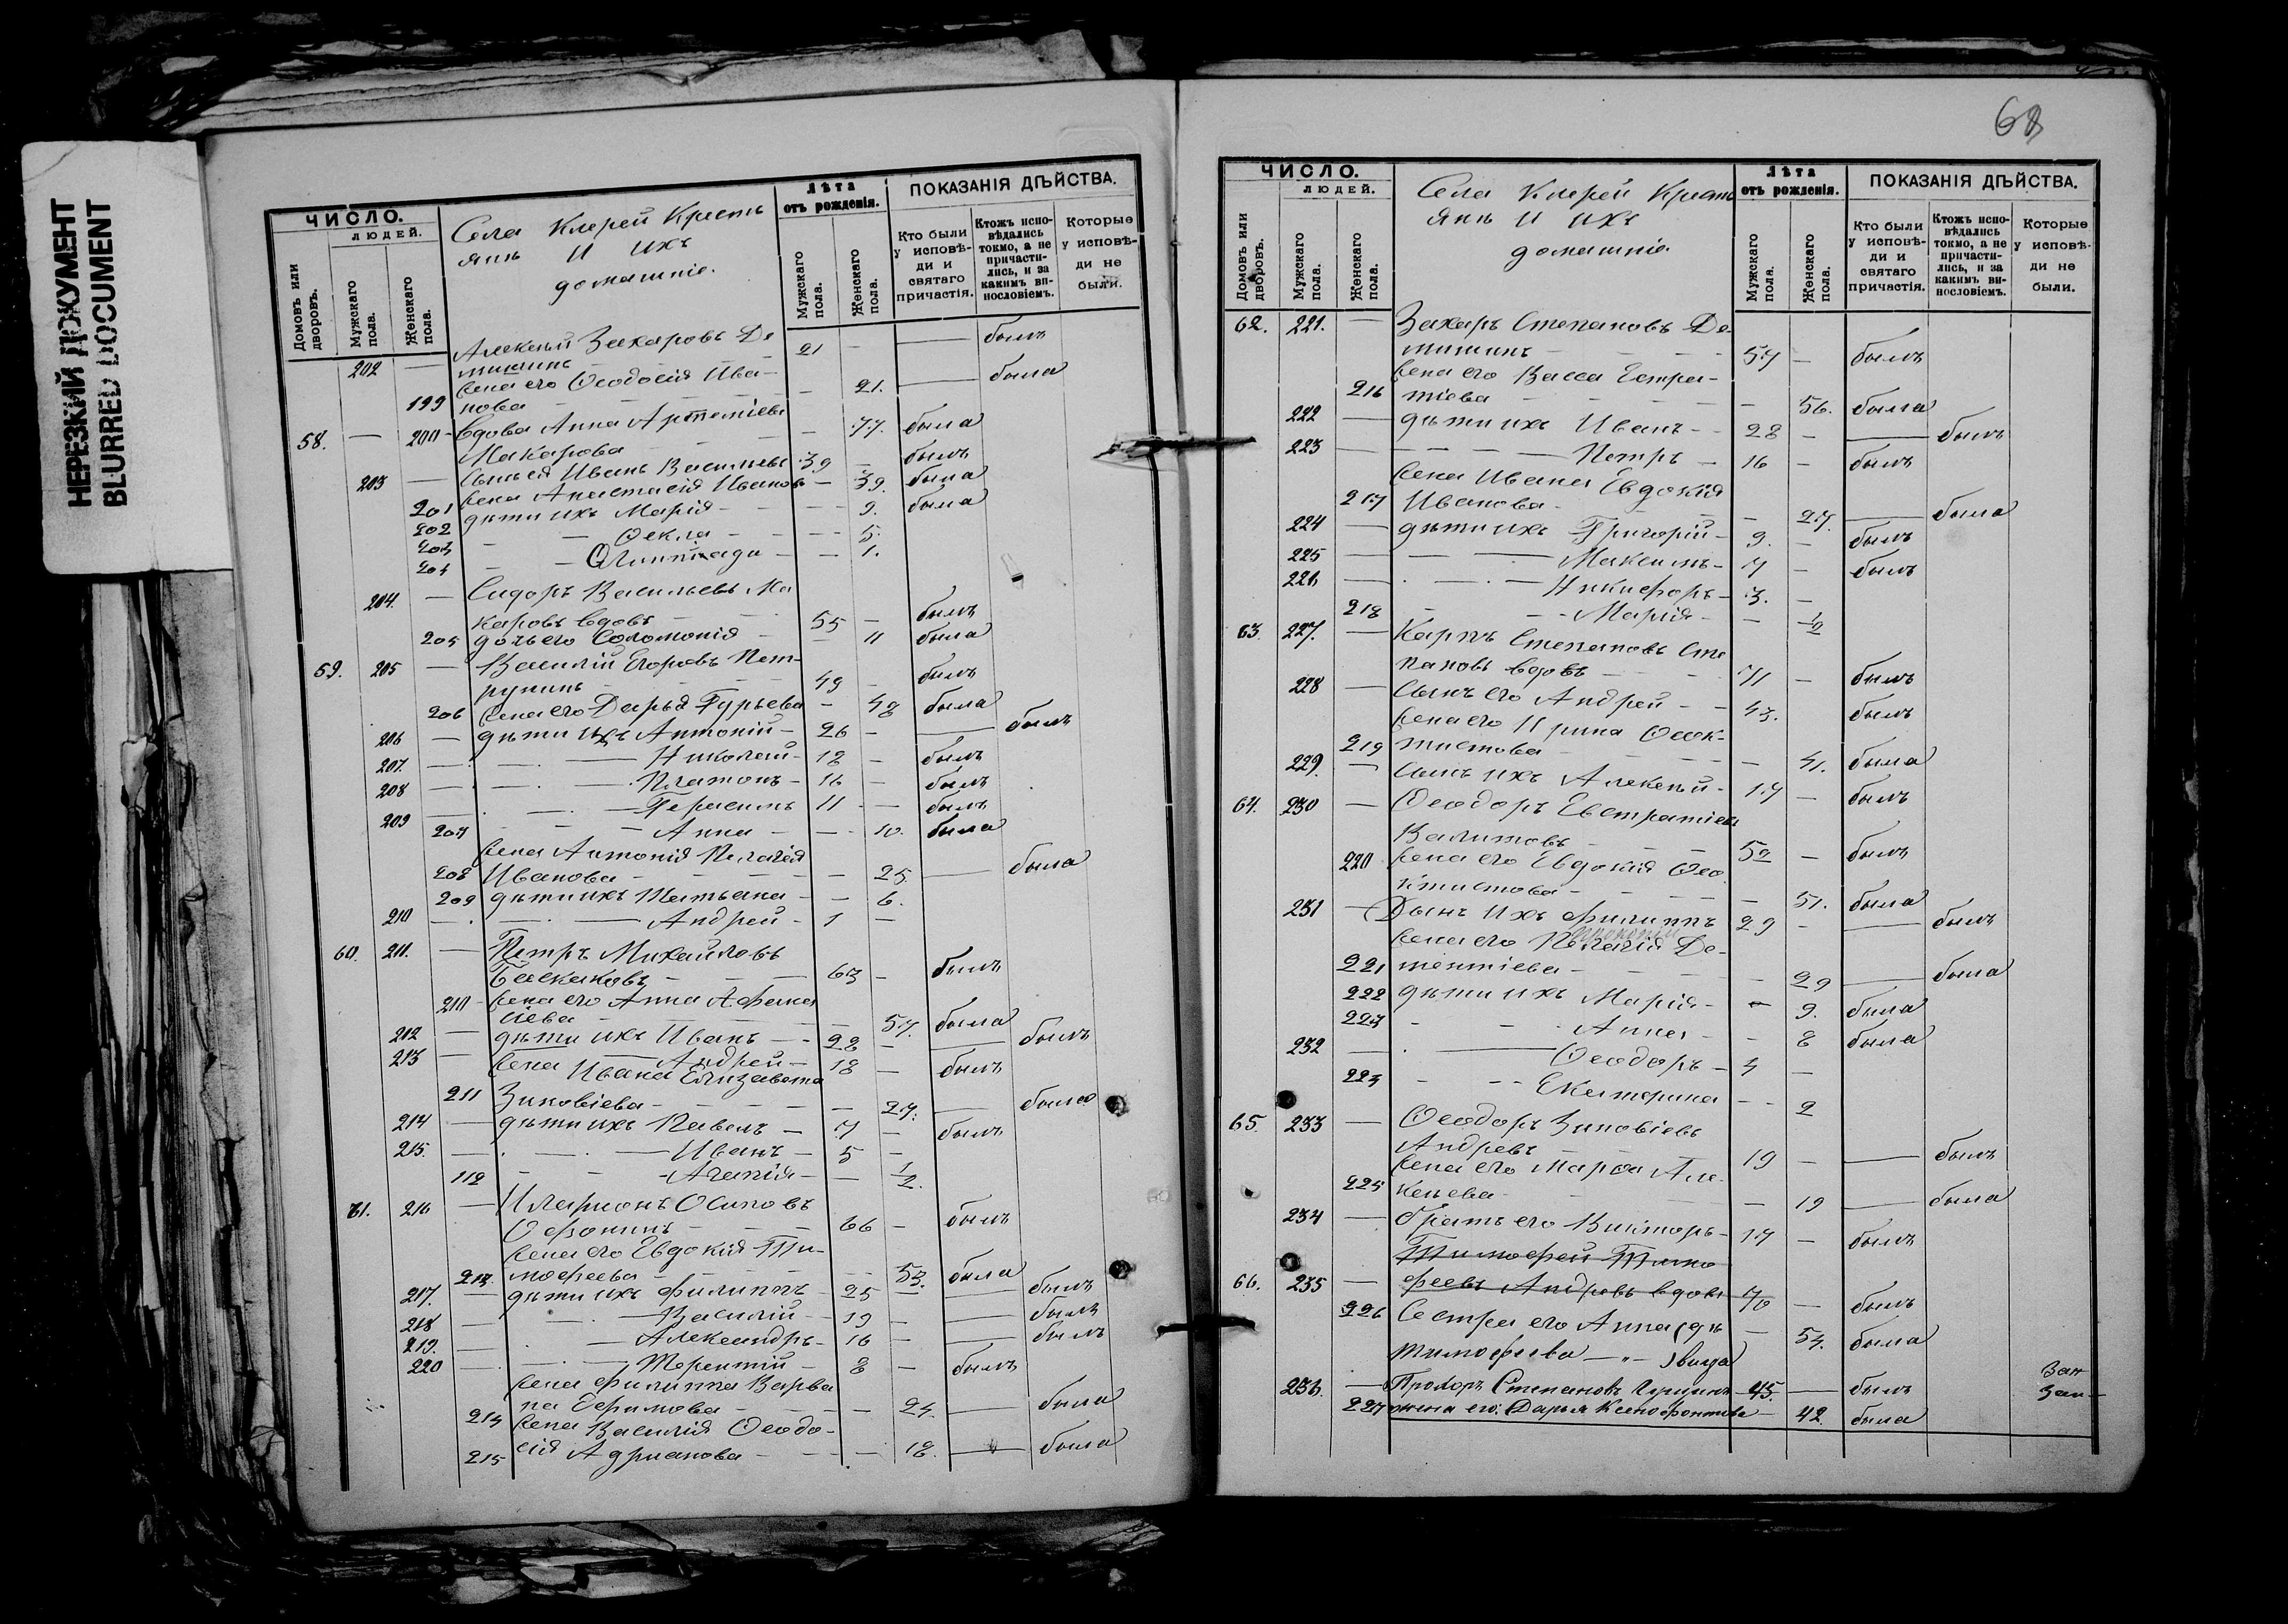 НЕРЕЗКИЙ ДОКУМЕНТ
BLURRED DOCUMENT
ЧИСЛО.
ЛЮДЕЙ.
Домовъ или дворовъ.
Мужскаго пола.
Женскаго пола.
Села Клерей Кресть
янъ И ихъ
домашніе.
Лѣта
отъ рожденія.
Мужскаго пола.
Женскаго пола.
ПОКАЗАНІЯ ДѢЙСТВА.
Кто были у исповѣ-
ди и
святаго
причастія.
Ктожъ испо-
вѣдались
токмо, а не
причасти-
лись, и за
какимъ ви-
нословіемъ.
Которые
у исповѣ-
ди не
были.
202 — Алексѣй Захаровъ Де 21 — — былъ
199 жена его Ѳеодосія Ива-
нова — 21. — была
58. — 200 Вдова Анна Артеміева
Макарова — 77. была
203 — сынъ ея Иванъ Васильевъ 39 — былъ
201 жена Анастасія Иванов — 39. была
202 дѣти ихъ Марія — 9. была
203 — Ѳекла — 5.
204 — Олимпіада — 1.
204. — Сидоръ Васильевъ Ма
каровъ вдовъ 55 — былъ
205 дочь его Соломонія — 11 была
59. 205 — Василій Егоровъ Пет-
рунинъ 49 — былъ
206 жена его Дарья Гурьева — 48 была
206 — дѣти ихъ Антоній 26 — — былъ
207. — Николай 18 — былъ
208 — Платонъ 16 — былъ
209 — Герасимъ 11 — былъ
207 — Анна — 10. была
жена Антонія Пелагія
208 Иванова — 25. — была
209 дѣти ихъ Татьяна — 6.
210 — Андрей 1 —
60. 211. — Петръ Михайловъ
Баскаковъ 63 — былъ
210 жена его Анна Афана
сіева — 57. была
212 — дѣти ихъ Иванъ 28 — — былъ
213 — Андрей 18 — былъ
жена Ивана Елизавета
211 Зиновіева — 27. — была
214 — дѣти ихъ Павелъ 7 — былъ
215. — Иванъ 5 —
112 — Агапія — 1/2.
61. 216 — Иларионъ Осиповъ
Офонинъ 66 — былъ
жена его Евдокія Ти-
213. мофеева — 53. была
217. — дѣти ихъ Филиппъ 25 — — былъ
218 — Василій 19 — — былъ
219. — Александръ 16 — — былъ
220 — Терентій 8 — былъ
жена Филиппа Варва
214 ра Ефимова — 24. — была
жена Василія Ѳеодо-
215 сія Адріанова — 18. — была
68
ЧИСЛО.
ЛЮДЕЙ.
Домовъ или дворовъ.
Мужскаго пола.
Женскаго пола.
Села Клерей Кресть
янъ И ихъ
домашніе.
Лѣта
отъ рожденія.
Мужскаго пола.
Женскаго пола.
ПОКАЗАНІЯ ДѢЙСТВА.
Кто были
у исповѣ-
ди и
святаго
причастія.
Ктожъ испо-
вѣдались
токмо, а не
причасти-
лись, и за
какимъ ви-
нословіемъ.
Которые
у исповѣ-
ди не
были.
62. 221. — Захаръ Степановъ Де
57 — былъ
жена его Васса Евстра-
216 тіева — 56. была
222 — дѣти ихъ Иванъ 28 — — былъ
223 — Петръ 16 — былъ
жена Ивана Евдокія
217 Иванова — 27. — была
224 — дѣти ихъ Григорій 9. — былъ
225 — Максимъ 7 — былъ
226 — Никифоръ 3. —
218 — Марія — 1/2
63. 227. — Карпъ Степановъ Сте
пановъ вдовъ 71 — былъ
228 — Сынъ его Андрей 43. былъ
жена его Ирина Ѳеок-
219 тистова — 41. была
229. — Сынъ ихъ Алексѣй 17 — былъ
64. 230 — Ѳеодоръ Евстратіевъ
Валитовъ 52 — былъ
220 жена его Евдокія Ѳео
ктистова — 51. была
231 — Сынъ ихъ Филиппъ 29 — — былъ
жена его Пелагія Де-
221 ментіева — 29 — была
222 дѣти ихъ Марія — 9. была
223 — Анна — 8 была
232 — Ѳеодоръ 4 —
223 — Екатерина — 2
65. 233 — Ѳеодоръ Зиновіевъ
Андревъ 19 — — былъ
жена его Марѳа Але
225 ксѣева — 19 — была
234 — братъ его Викторъ 17 — былъ
Тимофей Тимо
66. 235 — феевъ Андревъ вдовъ 70 — былъ
226 Сестра его Анна (дѣ — 54. была
Тимофеева —"— )вица
236. — Прохоръ Степановъ 45. — былъ
227 жена его: Дарья Ксенофонтова — 42. была